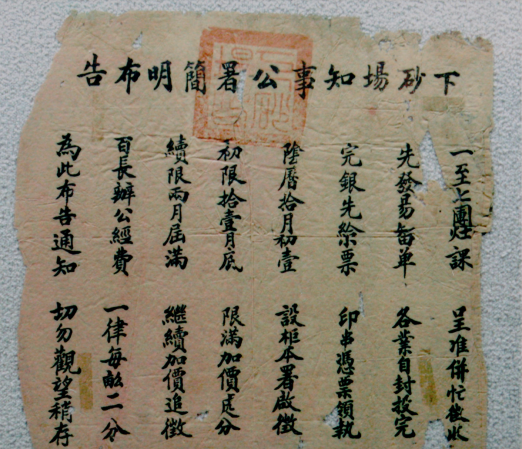 下砂場知事公署簡明布告
一至七團灶課 呈准併忙徵收
先發易畱单 各業自封投完
完銀先給票 印串憑票領執
陰曆拾月初壹 設柜本署啟徵
初限拾壹月底 限滿加價分
續限兩月屆滿 繼續加價追徵
百長辦公經費 一律每畝二分
為此布告通知 切勿觀望稍存